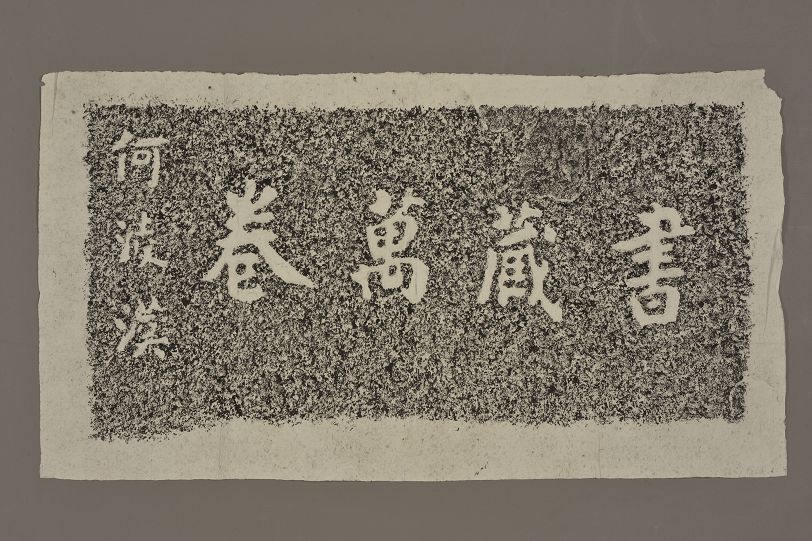 書藏萬卷
何淩漢